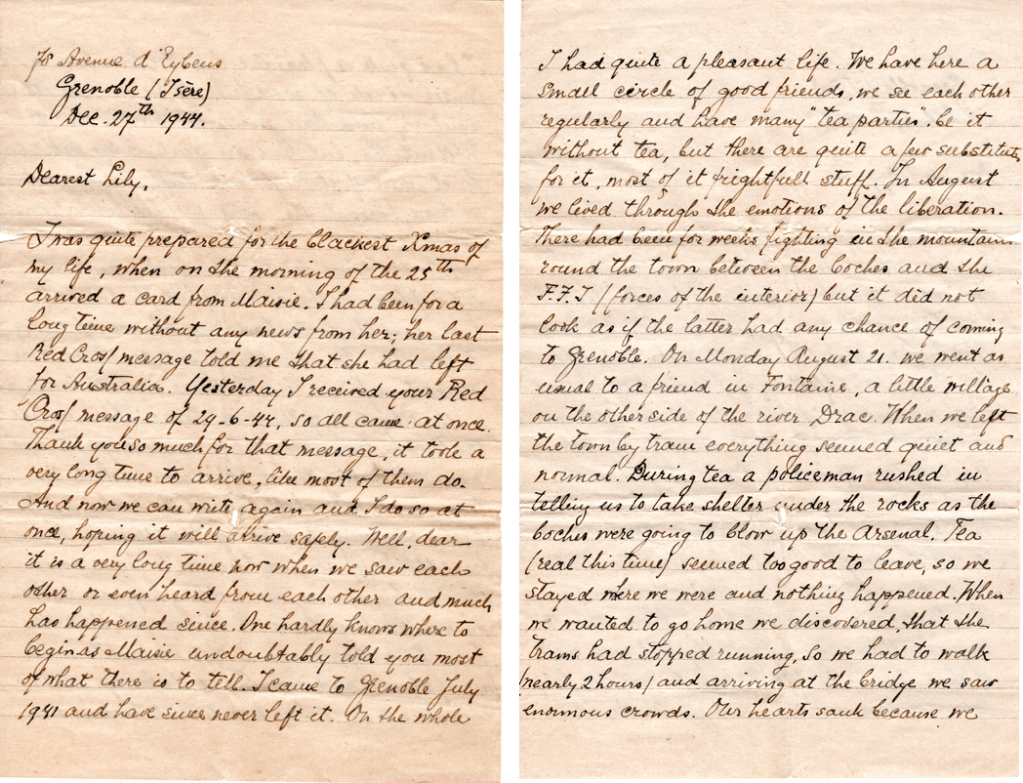 78 Avenue d'Eybens
Grenoble (Isère)
Dec. 27th 1944.
Dearest Lily,
I was quite prepared for the blackest Xmas of
my life, when on the morning of the 25th
arrived a card from Maisie. I had been for a
long time without any news from her; her last
Red Cross message told me that she had left
for Australia. Yesterday I received your Red
Cross message of 29-6-44, so all came at once.
Thank you so much for that message, it took a
very long time to arrive, like most of them do.
And now we can write again and I do so at
once, hoping it will arrive safely. Well, dear
it is a very long time now when we saw each
other or even heard from each other and much
has happened since. One hardly knows where to
begin as Maisie undoubtably told you most
of what there is to tell. I came to Grenoble July
1941 and have since never left it. On the whole
I had quite a pleasant life. We have here a
small circle of good friends, we see each other
regularly and have many "tea parties". be it
without tea, but there are quite a few substitute
for it, most of it frightfull stuff. In August
we lived through the emotions of the liberation.
There had been for weeks fighting in the mountains
round the town between the boches and the
F.F.I (forces of the interior) but it did not
look as if the latter had any chance of coming
to Grenoble. On Monday August 21. we went as
usual to a friend in Fontaine, a little village
on the other side of the river Drac. When we left
the town by tram everything seemed quiet and
normal. During tea a policeman rushed in
telling us to take shelter under the rocks as the
boches were going to blow up the Arsenal. Tea
(real this time) seemed too good to leave, so we
stayed where we were and nothing happened. When
we wanted to go home we discovered, that the
trams had stopped running, so we had to walk
(nearly 2 hours) and arriving at the bridge we saw
enormous crowds. Our hearts sank because we